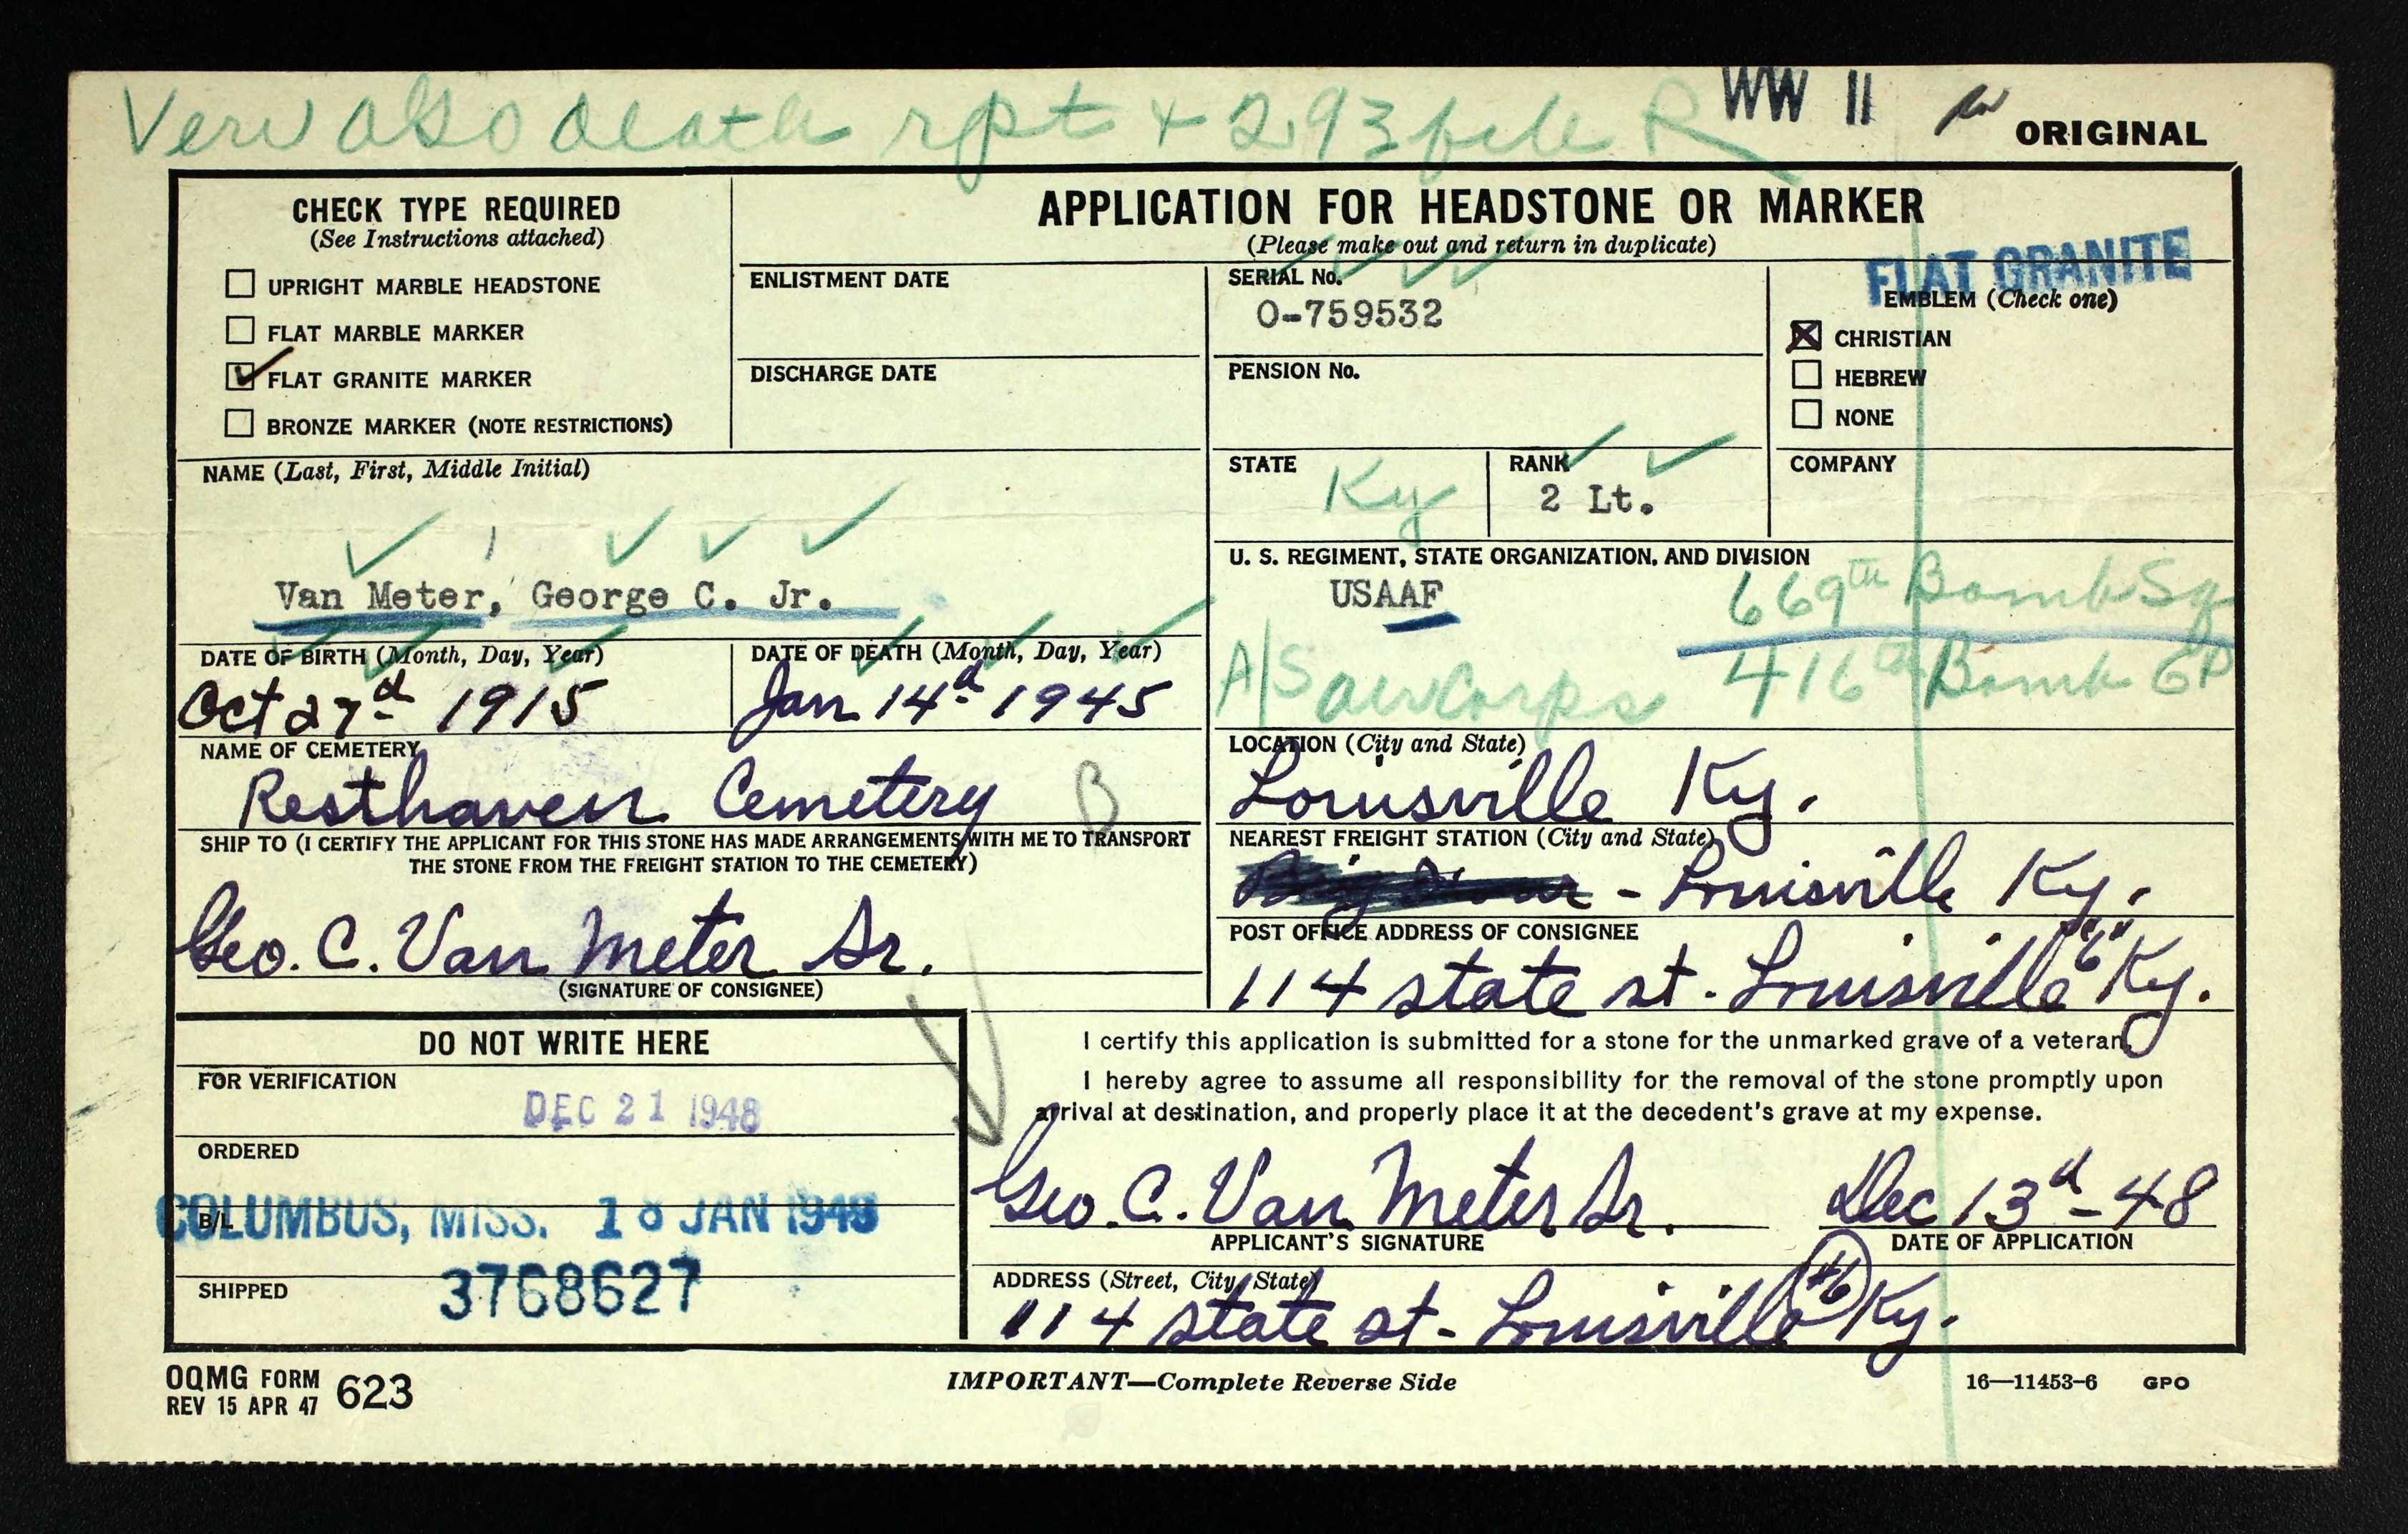 Veri also death rpt + 293 file R
WW II
ORIGINAL
CHECK TYPE REQUIRED
(See Instructions attached)
UPRIGHT MARBLE HEADSTONE
FLAT MARBLE MARKER
FLAT GRANITE MARKER
BRONZE MARKER (NOTE RESTRICTIONS)
APPLICATION FOR HEADSTONE OR MARKER
(Please make out and return in duplicate)
FLAT GRANITE
ENLISTMENT DATE
DISCHARGE DATE
SERIAL No.
O-759532
PENSION No.
EMBLEM (Check one)
CHRISTIAN
HEBREW
NONE
NAME (Last, First, Middle Initial)
Van Meter, George C. Jr.
STATE
Ky
RANK
2 Lt.
COMPANY
U. S. REGIMENT, STATE ORGANIZATION, AND DIVISION
USAAF
669th Bomb Sq
A/S air Corps 416th Bomb GP
DATE OF BIRTH (Month, Day, Year)
Oct 27d 1915
DATE OF DEATH (Month, Day, Year)
Jan 14d 1945
NAME OF CEMETERY
Resthaven Cemetery B
LOCATION (City and State)
Louisville Ky.
SHIP TO (I CERTIFY THE APPLICANT FOR THIS STONE HAS MADE ARRANGEMENTS WITH ME TO TRANSPORT
THE STONE FROM THE FREIGHT STATION TO THE CEMETERY)
Geo. C. Van Meter Sr.
(SIGNATURE OF CONSIGNEE)
NEAREST FREIGHT STATION (City and State)
- Louisville Ky.
POST OFFICE ADDRESS OF CONSIGNEE
114 state st. Louisville "6" Ky.
DO NOT WRITE HERE
FOR VERIFICATION
DEC 21 1948
ORDERED
B/L
COLUMBUS, MISS. 18 JAN 1949
SHIPPED
3768627
I certify this application is submitted for a stone for the unmarked grave of a veteran.
I hereby agree to assume all responsibility for the removal of the stone promptly upon
arrival at destination, and properly place it at the decedent's grave at my expense.
Geo. C. Van Meter Sr.
APPLICANT'S SIGNATURE
Dec 13d - 48
DATE OF APPLICATION
ADDRESS (Street, City, State)
114 state st - Louisville #6 Ky.
OQMG FORM
REV 15 APR 47
623
IMPORTANT—Complete Reverse Side
16—11453-6 GPO